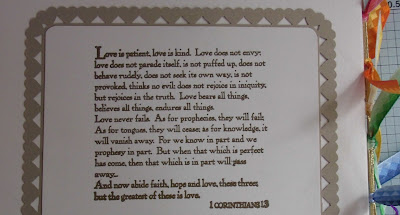 Love is patient, love is kind. Love does not envy;
love does not parade itself, is not puffed up, does not
behave rudely, does not seek its own way, is not
provoked, thinks no evil; does not rejoice in iniquity,
but rejoices in the truth. Love bears all things,
believes all things, endures all things.
Love never fails. As for prophecies, they will fail;
As for tongues, they will cease; as for knowledge, it
will vanish away. For we know in part and we
prophesy in part. But when that which is perfect
has come, then that which is in part will pass
away...
And now abide faith, hope and love, these three;
but the greatest of these is love.
1 CORINTHIANS 13
0.5